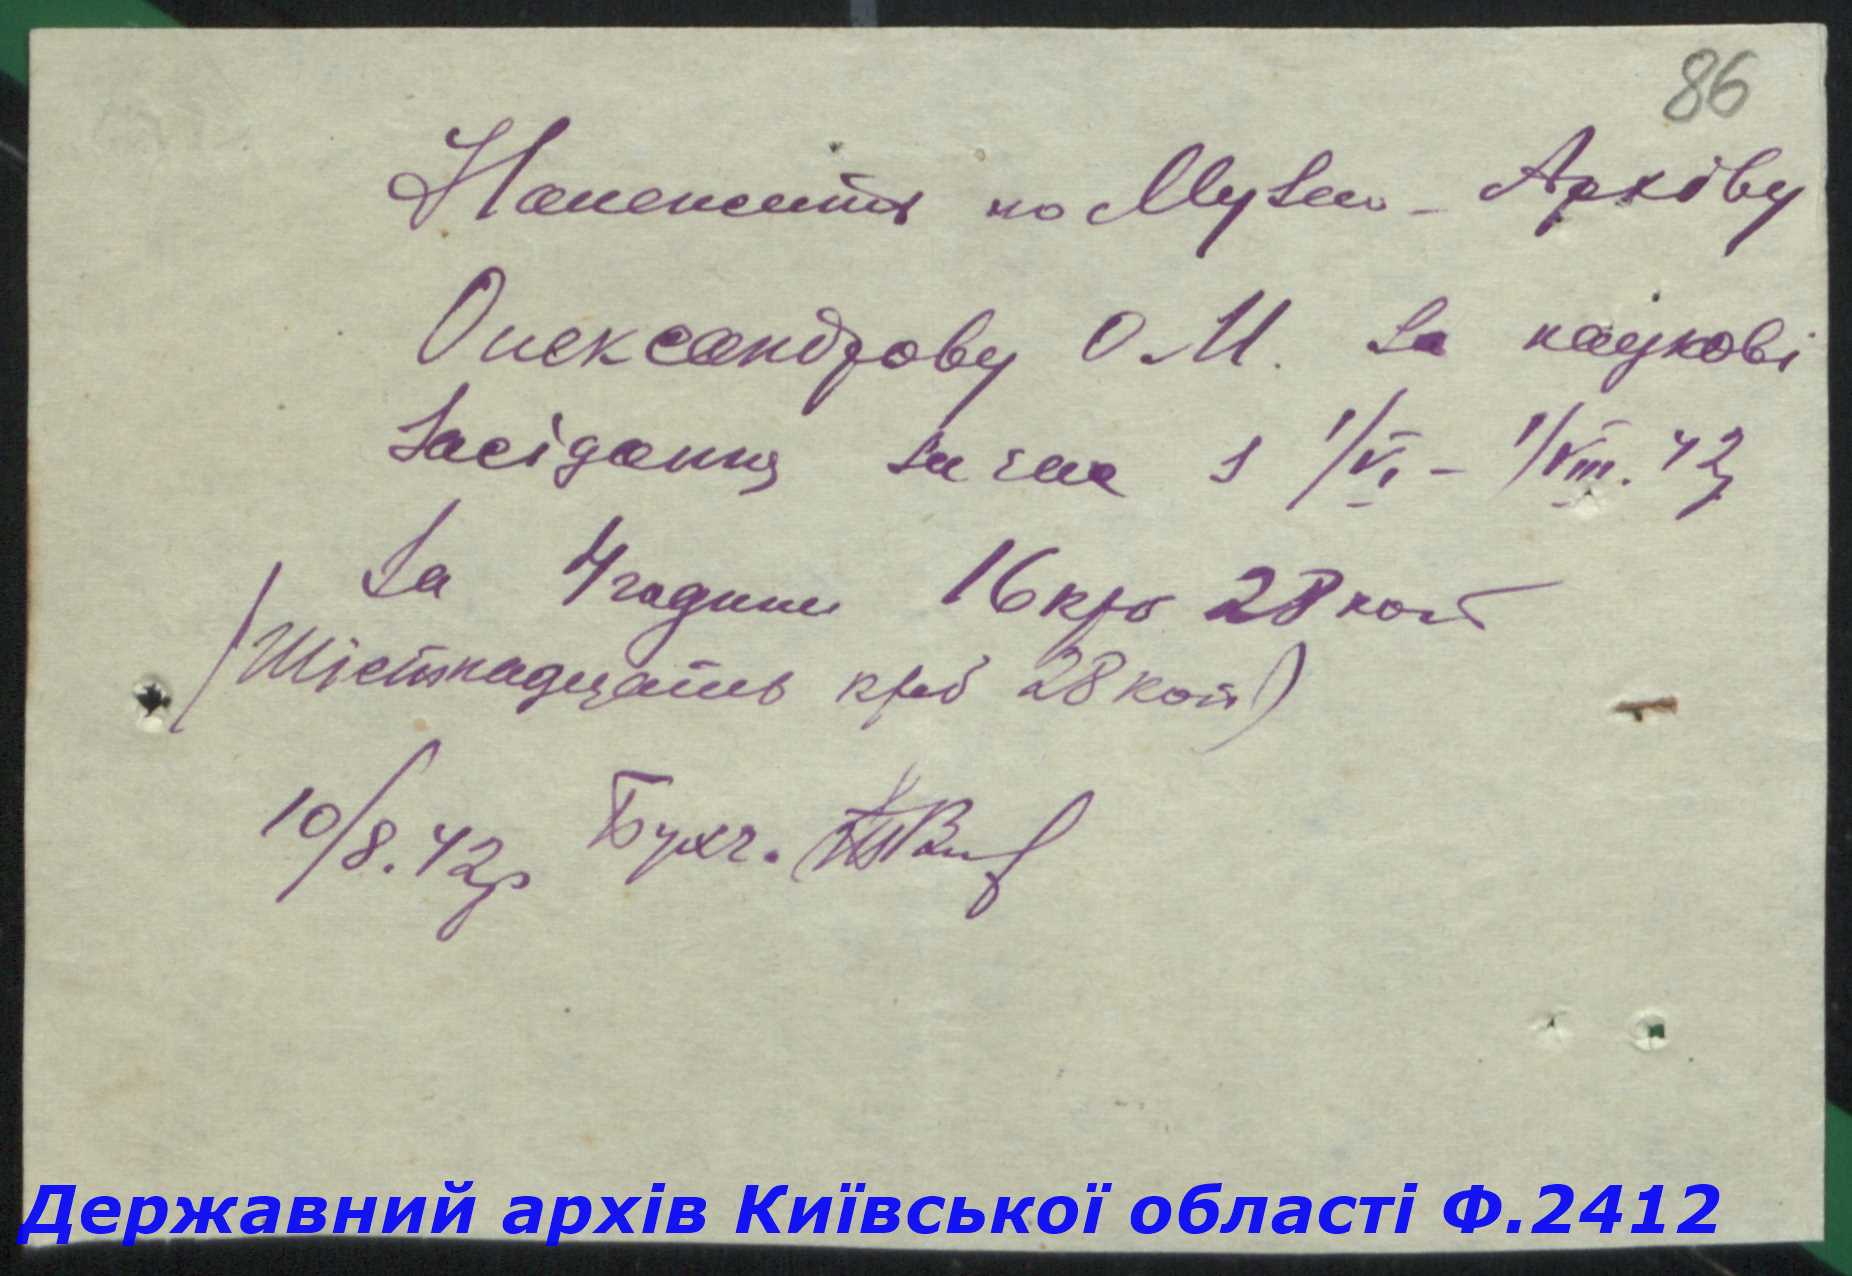 86
Належить по Музею-Архіву
Олександрову О.М. за наукові
засідання за час з 1/VI – 1/VIII.42
за 4 години 16 крб 28 коп
(Шістнадцать крб 28 коп)
10/8.42р Бухг.
Державний архів Київської області Ф.2412